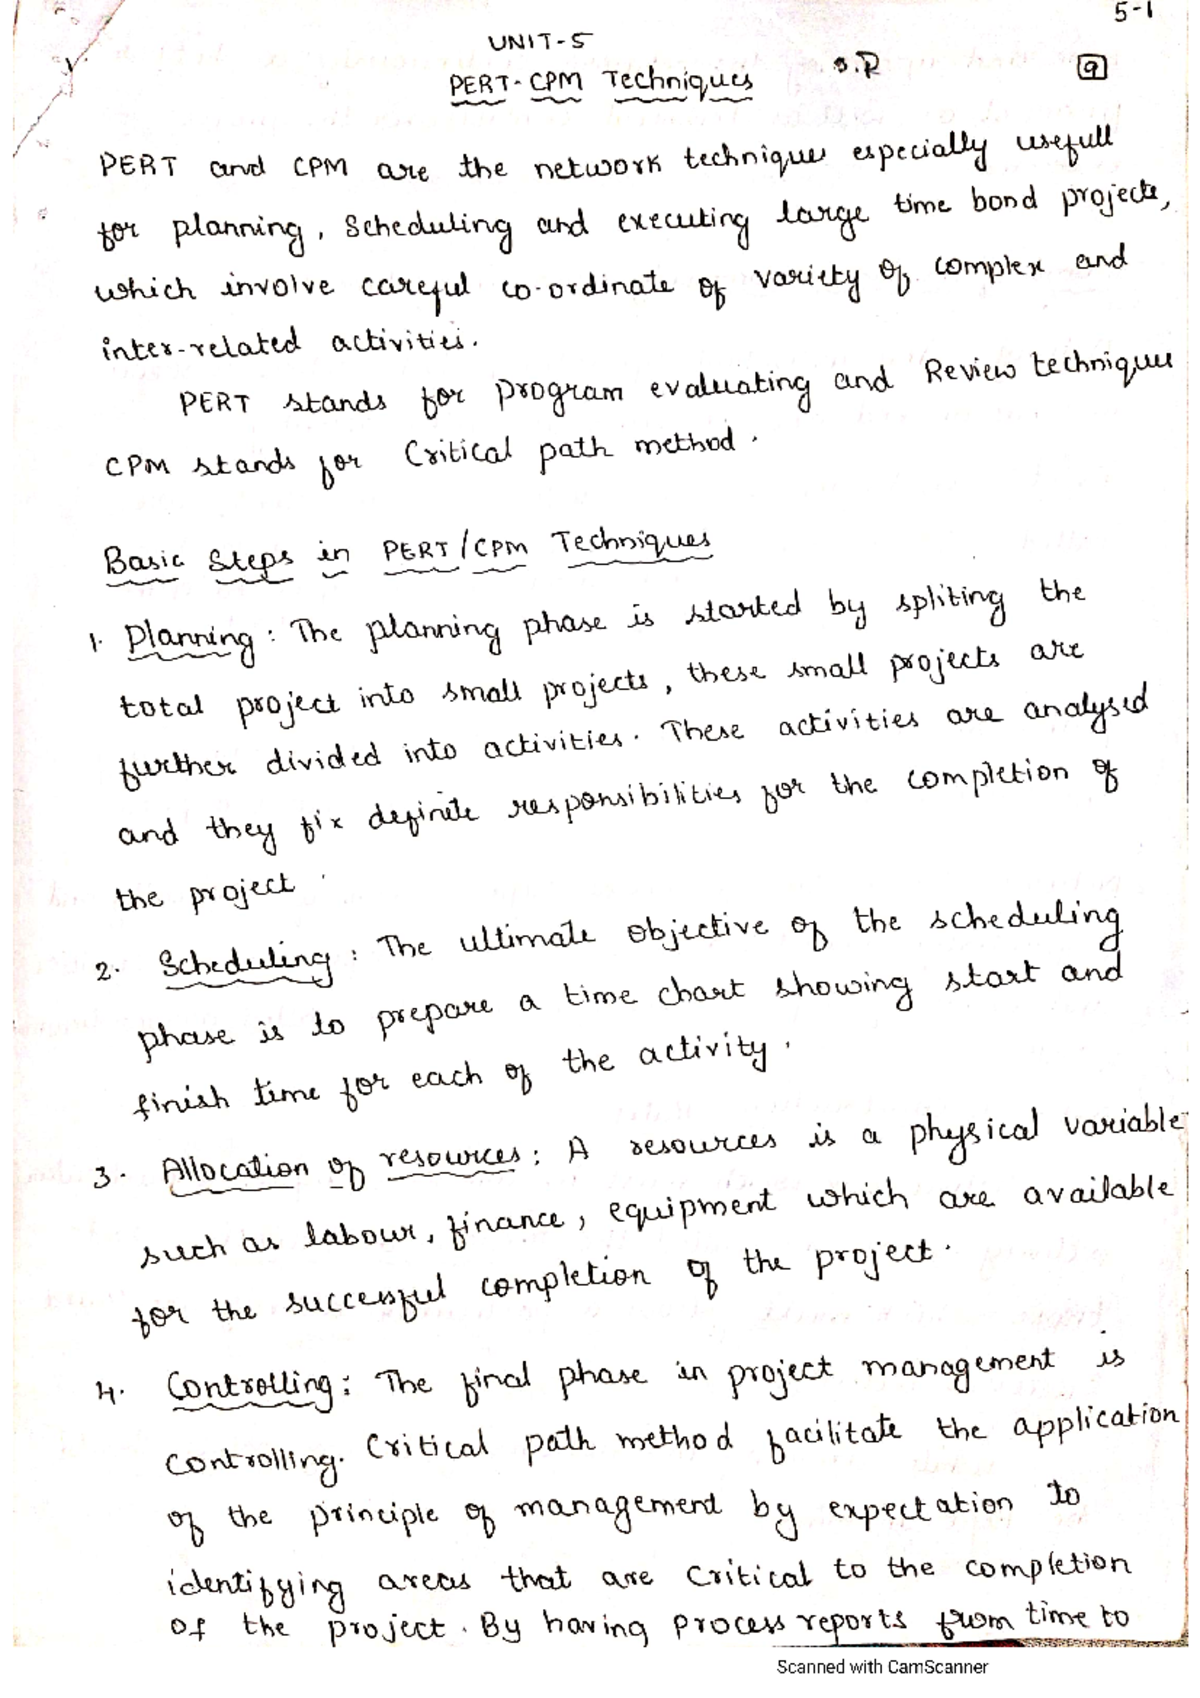 5-1
UNIT-5
PERT-CPM Techniques O.R 9
PERT and CPM are the network techniques especially usefull
for planning, Scheduling and executing large time bond projects,
which involve careful co-ordinate of variety of complex and
inter-related activities.
PERT stands for program evaluating and Review techniques
CPM stands for Critical path method.
Basic Steps in PERT/CPM Techniques
1. Planning: The planning phase is started by spliting the
total project into small projects, these small projects are
further divided into activities. These activities are analysed
and they fix definite responsibilities for the completion of
the project.
2. Scheduling: The ultimate objective of the scheduling
phase is to prepare a time chart showing start and
finish time for each of the activity.
3. Allocation of resources: A resources is a physical variable
such as labour, finance, equipment which are available
for the successful completion of the project.
4. Controlling: The final phase in project management is
controlling. Critical path method facilitate the application
of the principle of management by expectation to
identifying areas that are critical to the completion
of the project. By having process reports from time to
Scanned with CamScanner